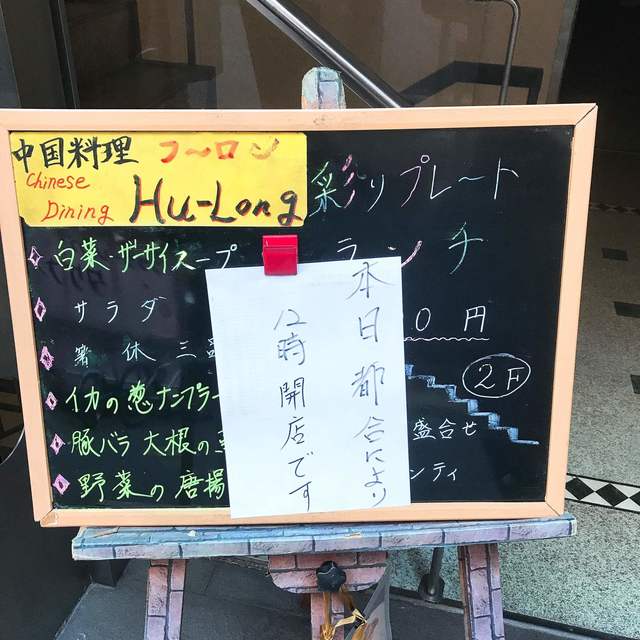 中国料理 フーロン
Chinese
Dining Hu-Long
彩りプレート
ランチ
0円
2F
白菜・ザーサイスープ
サラダ
箸休三品
イカの葱ナンプラー
豚バラ 大根の
野菜の唐揚
盛合せ
ンティ
本日都合により
12時開店です